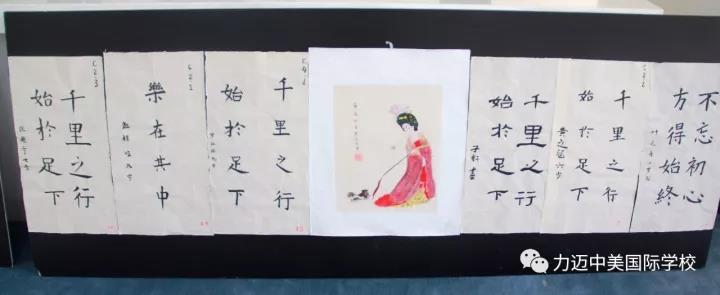 千里之行
始於足下
樂在其中
千里之行
始於足下
千里之行
始於足下
千里之行
始於足下
不忘初心
方得始終
力迈中美国际学校